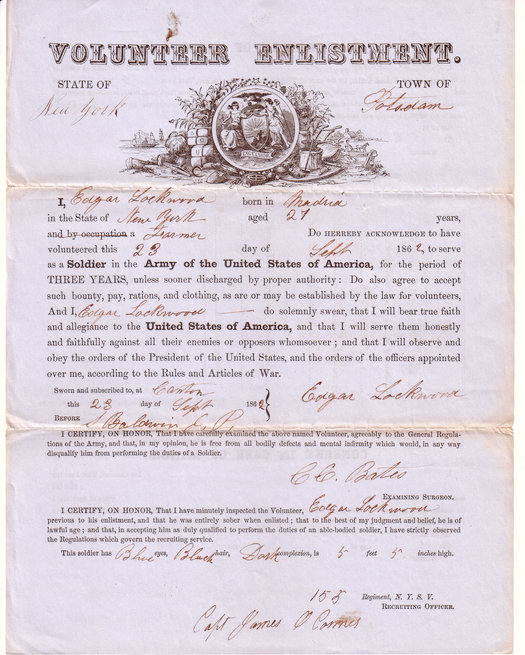 VOLUNTEER ENLISTMENT.
STATE OF TOWN OF
New York Potsdam
I, Edgar Lockwood born in Madrid
in the State of New York aged 27 years,
and by occupation a Farmer Do HEREBY ACKNOWLEDGE to have
volunteered this 23 day of Sept 1862 to serve
as a Soldier in the Army of the United States of America, for the period of
THREE YEARS, unless sooner discharged by proper authority: Do also agree to accept
such bounty, pay, rations, and clothing, as are or may be established by the law for volunteers,
And I, Edgar Lockwood do solemnly swear, that I will bear true faith
and allegiance to the United States of America, and that I will serve them honestly
and faithfully against all their enemies or opposers whomsoever; and that I will observe and
obey the orders of the President of the United States, and the orders of the officers appointed
over me, according to the Rules and Articles of War.
Sworn and subscribed to, at Canton
this 23 day of Sept 1862 Edgar Lockwood
BEFORE Baldwin
I CERTIFY, ON HONOR, That I have carefully examined the above named Volunteer, agreeably to the General Regula-
tions of the Army, and that, in my opinion, he is free from all bodily defects and mental infirmity which would, in any way
disqualify him from performing the duties of a Soldier.
C. C. Bates
EXAMINING SURGEON.
I CERTIFY, ON HONOR, That I have minutely inspected the Volunteer, Edgar Lockwood
previous to his enlistment, and that he was entirely sober when enlisted; that to the best of my judgment and belief, he is of
lawful age; and that, in accepting him as duly qualified to perform the duties of an able-bodied soldier, I have strictly observed
the Regulations which govern the recruiting service.
This soldier has Blue eyes, Black hair, Dark complexion, is 5 feet 5 inches high.
155 Regiment, N. Y. S. V.
RECRUITING OFFICER.
Capt James O'Conner